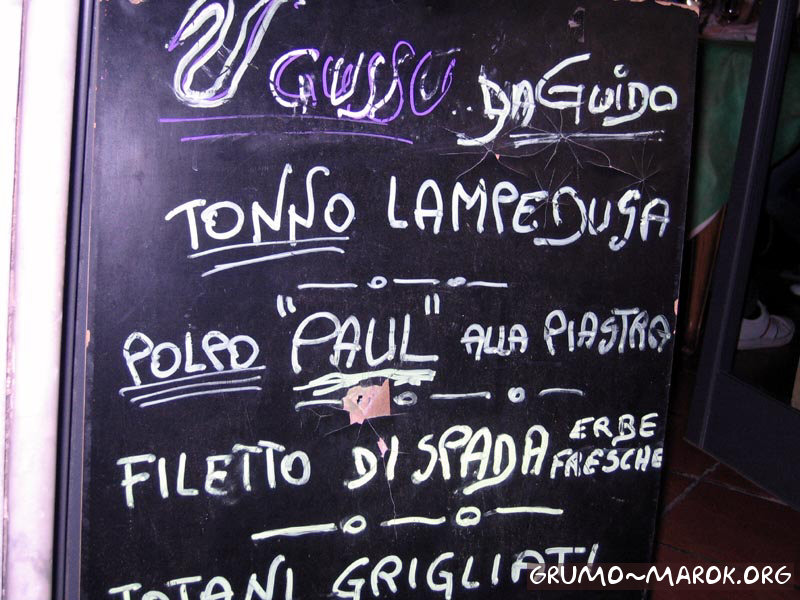 'U GUSSU.. DA GUIDO
TONNO LAMPEDUSA
POLPO "PAUL" ALLA PIASTRA
FILETTO DI SPADA ERBE FRESCHE
TOTANI GRIGLIATI
GRUMO~MAROK.ORG